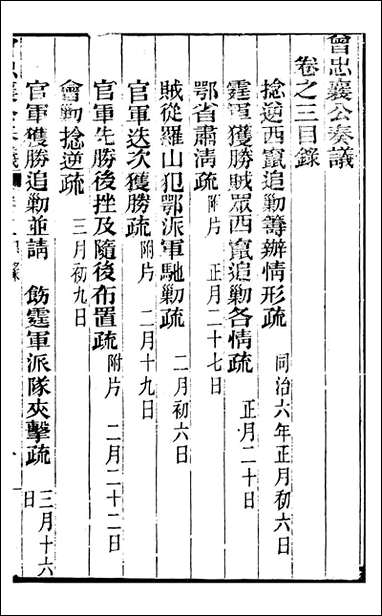 曾忠襄公奏議
卷之三目錄
捻逆西竄追勦籌辦情形疏 同治六年正月初六日
霆軍獲勝賊眾西竄追勦各情疏 正月二十日
鄂省肅清疏 附片 正月二十七日
賊從羅山犯鄂派軍馳勦疏 二月初六日
官軍迭次獲勝疏 附片 二月十九日
官軍先勝後挫及隨後布置疏 附片 二月二十二日
會勦捻逆疏 三月初九日
官軍獲勝追勦並請 飭霆軍派隊夾擊疏 三月十六日